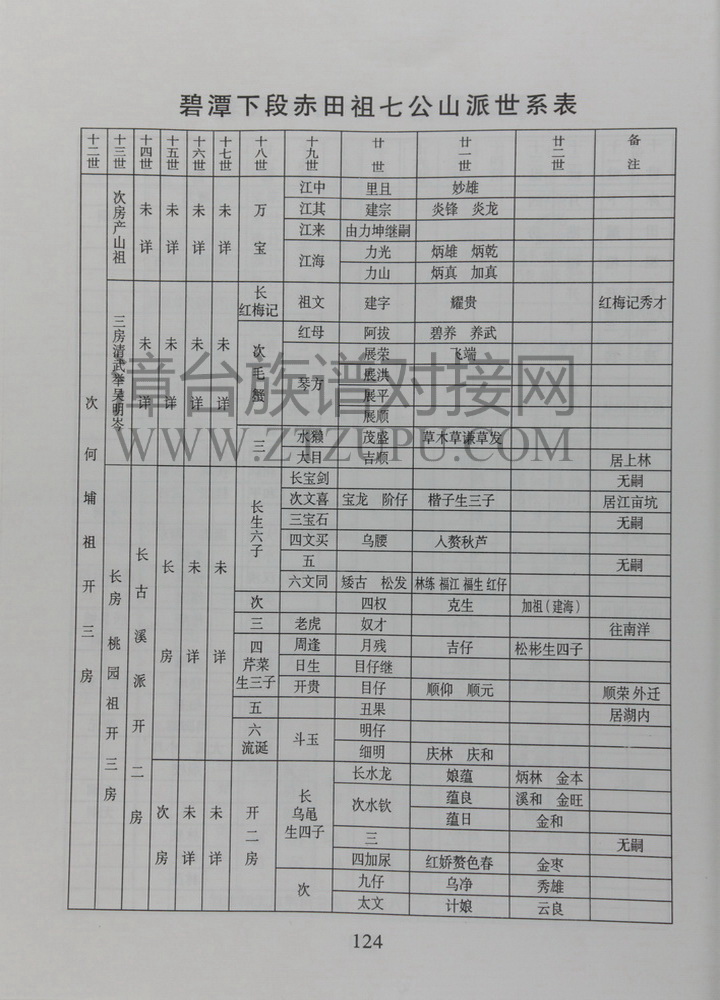 碧潭下段赤田祖七公山派世系表
十二世 十三世 十四世 十五世 十六世 十七世 十八世 十九世 廿世 廿一世 廿二世 备注
次何埔祖开三房
次房产山祖 未详 未详 未详 未详 万宝 江中 里且 妙雄
江其 建宗 炎锋 炎龙
江来 由力坤继嗣
江海 力光 炳雄 炳乾
力山 炳真 加真
三房清武举吴明岑 未详 未详 未详 未详 长红梅记 祖文 建字 耀贵 红梅记秀才
次毛蟹 红母 阿拔 碧养 养武
琴方 展荣 飞端
展洪
展平
展顺
三 水獭 茂盛 草木草谦草发
大目 吉顺 居上林
长房桃园祖开三房 长古溪派开二房 长房 未详 未详 长生六子 长宝剑 无嗣
次文喜 宝龙 阶仔 楷子生三子 居江亩坑
三宝石 无嗣
四文买 乌腰 入赘秋芦
五 无嗣
六文同 矮古 松发 林练 福江 福生 红仔
次 四权 克生 加祖(建海)
三 老虎 奴才 往南洋
四芹菜生三子 周逢 月残 吉仔 松彬生四子
日生 目仔继
开贵 目仔 顺仰 顺元 顺荣 外迁
五 丑果 居湖内
六流诞 斗玉 明仔
细明 庆林 庆和
次房 未详 未详 开二房 长乌黾生四子 长水龙 娘蕴 炳林 金本
次水钦 蕴良 溪和 金旺
蕴日 金和
三 无嗣
四加尿 红娇赘色春 金枣
次 九仔 乌净 秀雄
太文 计娘 云良
124
章台族谱对接网
WWW.ZTZUPU.COM